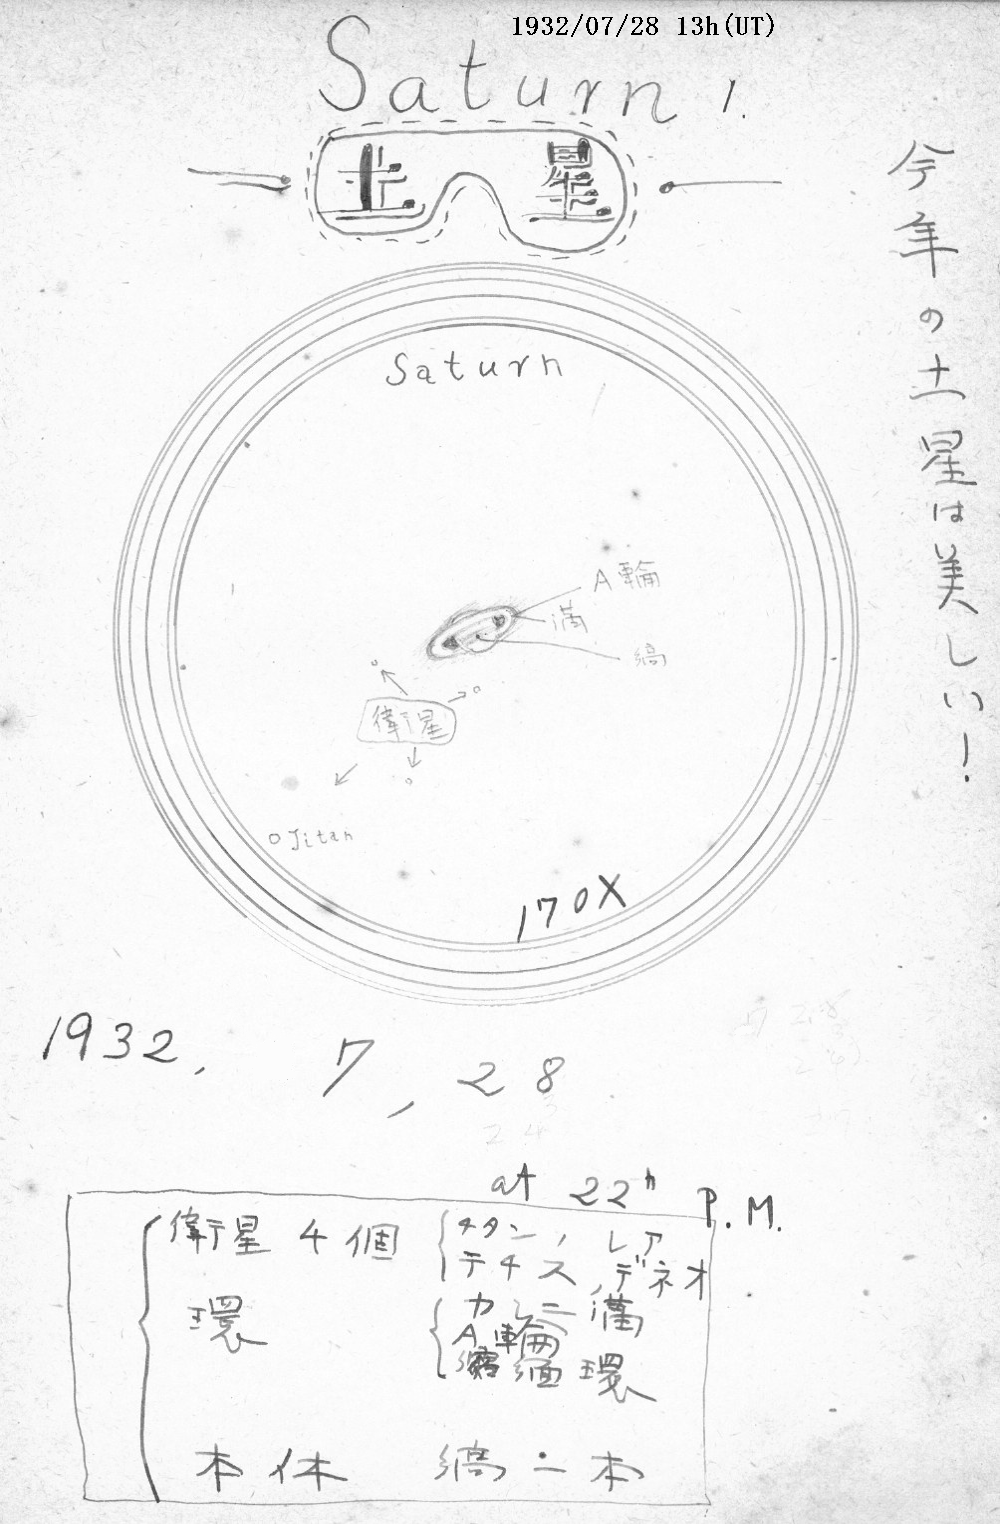 1932/07/28 13h(UT)
Saturn!
土星
今年の土星は美しい!
Saturn
A輪
溝
縞
衛星
Titan
170X
1932, 7, 28
at 22h P.M.
衛星 4個
チタン, レア
テチス, デネオ
環
カシニ溝
A輪
環
本体 縞二本